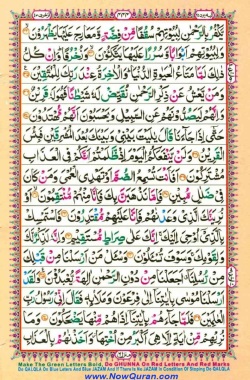 يَّكْفُرُ بِالرَّحْمٰنِ لِبُيُوْتِهِمْ سُقُفًا مِّنْ فِضَّةٍ وَّمَعَارِجَ عَلَيْهَا يَظْهَرُوْنَ
وَلِبُيُوْتِهِمْ اَبْوَابًا وَّسُرُرًا عَلَيْهَا يَتَّكِـُٔوْنَ وَزُخْرُفًا وَاِنْ كُلُّ
ذٰلِكَ لَمَّا مَتَاعُ الْحَيٰوةِ الدُّنْيَا وَالْاٰخِرَةُ عِنْدَ رَبِّكَ لِلْمُتَّقِيْنَ
وَمَنْ يَّعْشُ عَنْ ذِكْرِ الرَّحْمٰنِ نُقَيِّضْ لَهٗ شَيْطٰنًا فَهُوَ لَهٗ قَرِيْنٌ
وَاِنَّهُمْ لَيَصُدُّوْنَهُمْ عَنِ السَّبِيْلِ وَيَحْسَبُوْنَ اَنَّهُمْ مُّهْتَدُوْنَ
حَتّٰى اِذَا جَآءَنَا قَالَ يٰلَيْتَ بَيْنِيْ وَبَيْنَكَ بُعْدَ الْمَشْرِقَيْنِ فَبِئْسَ
الْقَرِيْنُ وَلَنْ يَّنْفَعَكُمُ الْيَوْمَ اِذْ ظَّلَمْتُمْ اَنَّكُمْ فِي الْعَذَابِ
مُشْتَرِكُوْنَ اَفَاَنْتَ تُسْمِعُ الصُّمَّ اَوْ تَهْدِي الْعُمْيَ وَمَنْ كَانَ
فِيْ ضَلٰلٍ مُّبِيْنٍ فَاِمَّا نَذْهَبَنَّ بِكَ فَاِنَّا مِنْهُمْ مُّنْتَقِمُوْنَ اَوْ
نُرِيَنَّكَ الَّذِيْ وَعَدْنٰهُمْ فَاِنَّا عَلَيْهِمْ مُّقْتَدِرُوْنَ فَاسْتَمْسِكْ
بِالَّذِيْٓ اُوْحِيَ اِلَيْكَ اِنَّكَ عَلٰى صِرَاطٍ مُّسْتَقِيْمٍ وَاِنَّهٗ لَذِكْرٌ
لَّكَ وَلِقَوْمِكَ وَسَوْفَ تُسْـَٔلُوْنَ وَسْـَٔلْ مَنْ اَرْسَلْنَا مِنْ قَبْلِكَ مِنْ
رُّسُلِنَآ اَجَعَلْنَا مِنْ دُوْنِ الرَّحْمٰنِ اٰلِهَةً يُّعْبَدُوْنَ وَلَقَدْ
اَرْسَلْنَا مُوْسٰى بِاٰيٰتِنَآ اِلٰى فِرْعَوْنَ وَمَلَا۟ئِهٖ فَقَالَ اِنِّيْ رَسُوْلُ رَبِّ
الْعٰلَمِيْنَ فَلَمَّا جَآءَهُمْ بِاٰيٰتِنَآ اِذَا هُمْ مِّنْهَا يَضْحَكُوْنَ وَمَا
نُرِيْهِمْ مِّنْ اٰيَةٍ اِلَّا هِيَ اَكْبَرُ مِنْ اُخْتِهَا وَاَخَذْنٰهُمْ بِالْعَذَابِ
Make The Green Letters Bold, Do GHUNNA On Red Letters And Red Marks
Do QALQALA On Blue Letters And Blue JAZAM And If There Is No JAZAM In Condition Of Stoping Do QALQALA
www.NowQuran.com